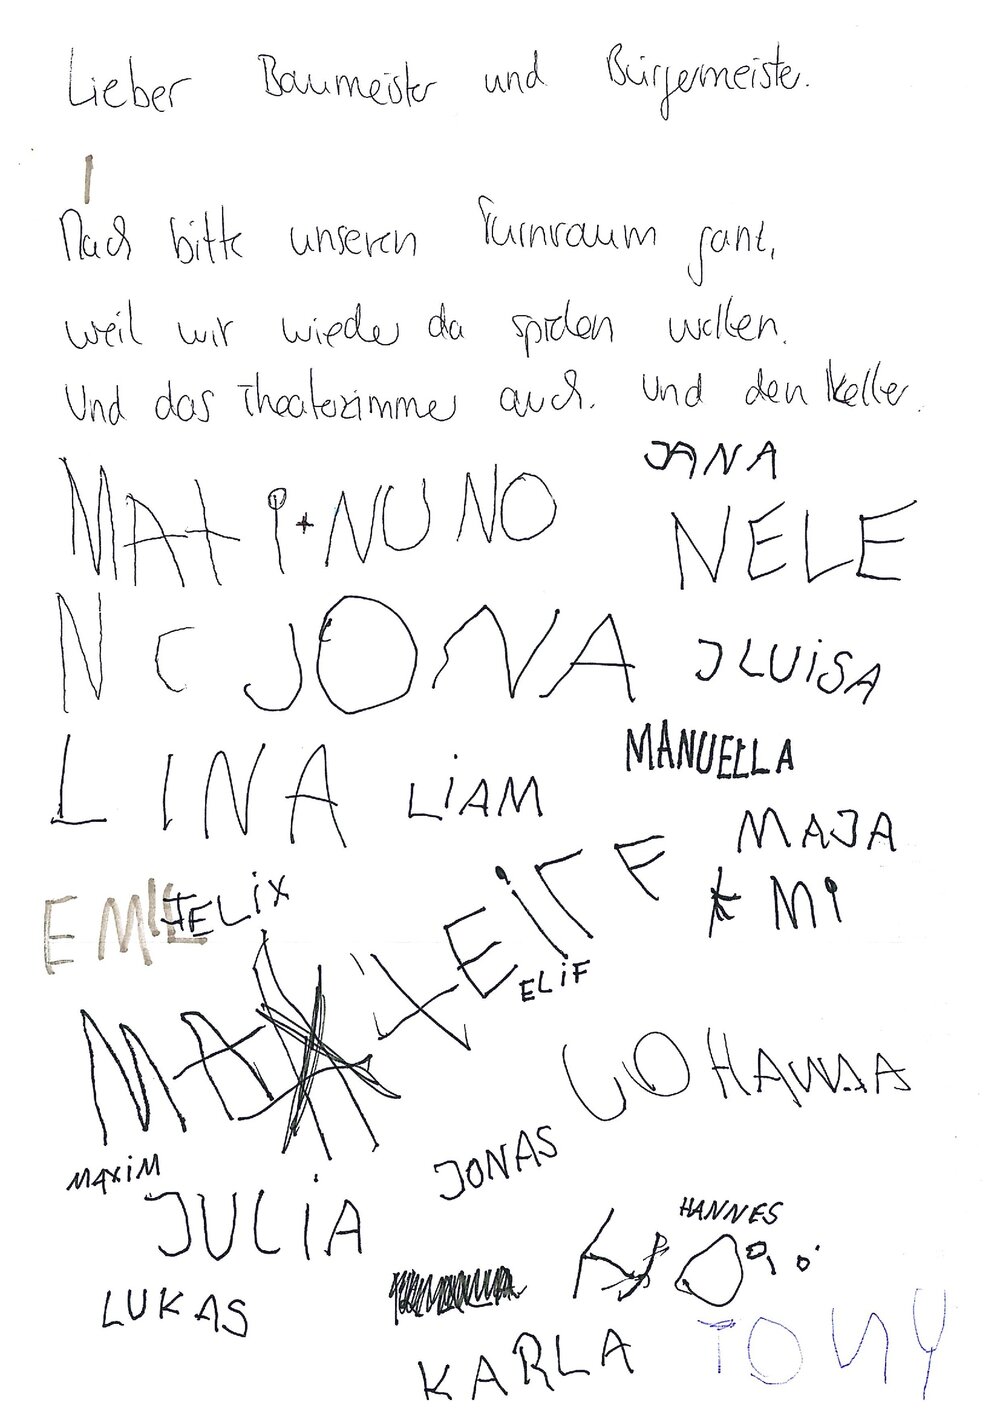 Lieber Baumeister und Bürgermeister.
Mach bitte unseren Turnraum ganz,
weil wir wieder da spielen wollen.
Und das Theaterzimmer auch. Und den Keller.
JANA
MATi + NUNO
NELE
JONA
JLUiSA
MANUELLA
LINA LiAM
MAJA
EMIL FELiX
Mi
ELiF
MAXiM
JONAS
JULiA
HANNES
LUKAS
KARLA
TONY